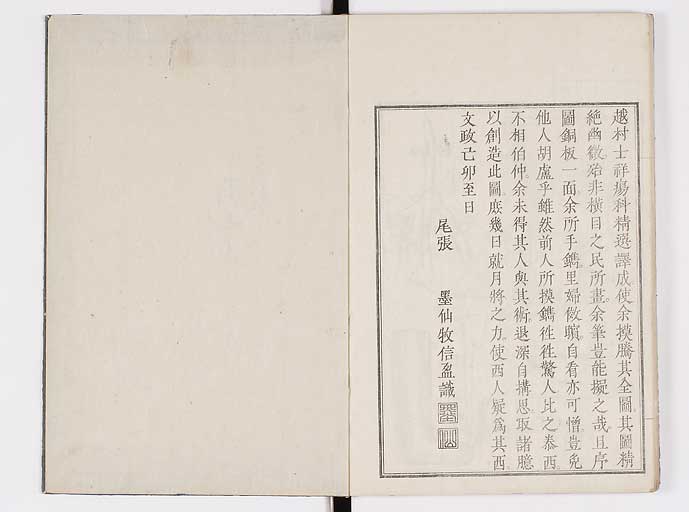 越村士祥瘍科精選譯成使余摸騰其全圖其圖精
絶幽微殆非橫目之民所畫余筆豈能擬之哉且序
圖銅板一面余所手鐫里婦倣矉自看亦可憎豈免
他人胡盧乎雖然前人所摸鐫徃徃驚人比之泰西
不相伯仲余未得其人與其術退深自搆思取諸臆
以創造此圖庻幾日就月將之力使西人疑爲其西
文政己卯至日
尾張
墨仙牧信盈識
墨仙